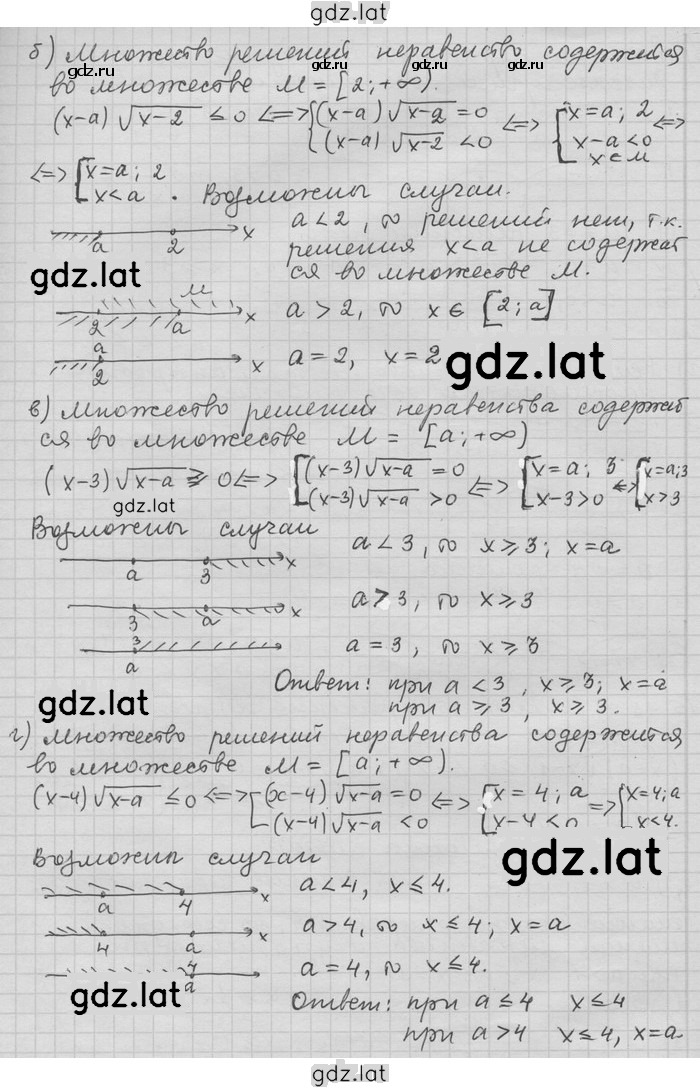 gdz.lat
б) Множество решений неравенство содержится
gdz.lat gdz.lat gdz.lat
во множестве M = [2; +∞).
(x-a) √x-2 ≤ 0 <=> [(x-a) √x-a = 0 (x-a) √x-2 < 0 <=> [x=a; 2 x-a<0 x∈M <=>
<=> [x=a; 2 x<a . Возможны случаи.
a<2, то решений нет, т.к.
a 2 x
решения x<a не содержат
gdz.lat
ся во множестве M.
M
2 a x
a > 2, то x ∈ [2; a]
a
2 x
a = 2, x = 2
gdz.lat
в) Множество решений неравенства содержит
ся во множестве M = [a; +∞)
(x-3) √x-a ≥ 0 <=> [(x-3) √x-a = 0 (x-3) √x-a > 0 <=> [x=a; 3 x-3>0 <=> [x=a;3 x>3
gdz.lat
Возможны случаи
a 3 x
a < 3, то x ≥ 3; x=a
3 a x
a > 3, то x ≥ 3
3
a
a = 3, то x ≥ 3
Ответ: при a < 3, x ≥ 3; x = a
gdz.lat
при a ≥ 3, x ≥ 3.
г) Множество решений неравенства содержится
во множестве M = [a; +∞).
(x-4) √x-a ≤ 0 <=> [(x-4) √x-a = 0 (x-4) √x-a < 0 <=> [x = 4; a x-4<0 => [x=4; a x<4.
gdz.lat
Возможны случаи
a 4 x
a<4, x ≤ 4.
4 a x
a>4, то x ≤ 4; x = a
4
a
a = 4, то x ≤ 4.
gdz.lat
Ответ: при a ≤ 4 x ≤ 4
при a > 4 x ≤ 4, x = a
gdz.lat